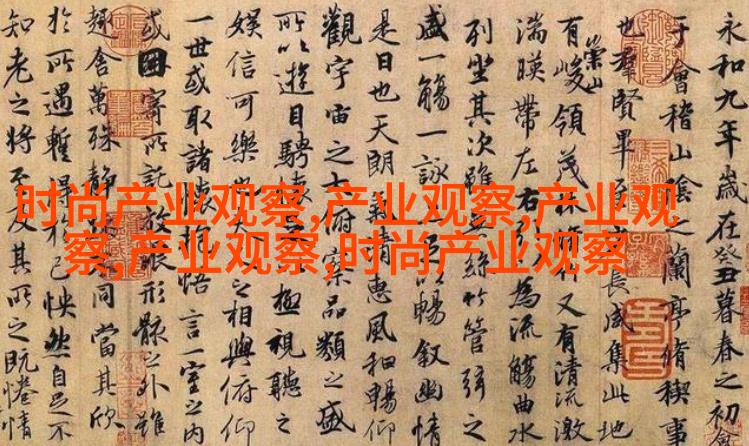 时尚产业观察,产业观察,产业观
察,产业观察,时尚产业观察
永和九年歲在癸丑暮春之初會
于會稽山陰之蘭亭脩稧事
也羣賢畢至少長咸集此地
有崇山峻領茂林脩竹又有清流激
湍暎帶左右引以為流觴曲水
列坐其次雖無絲竹管弦之
盛一觴一詠亦足以暢敘幽情
是日也天朗氣清惠風和暢仰
觀宇宙之大俯察品類之盛
所以遊目騁懷足以極視聽之
娛信可樂也夫人之相與俯仰
一世或取諸懷抱悟言一室之內
或因寄所託放浪形骸之外雖
趣舍萬殊靜躁不同當其欣
於所遇蹔得於己怏然自足不
知老之將至及其所之既惓情